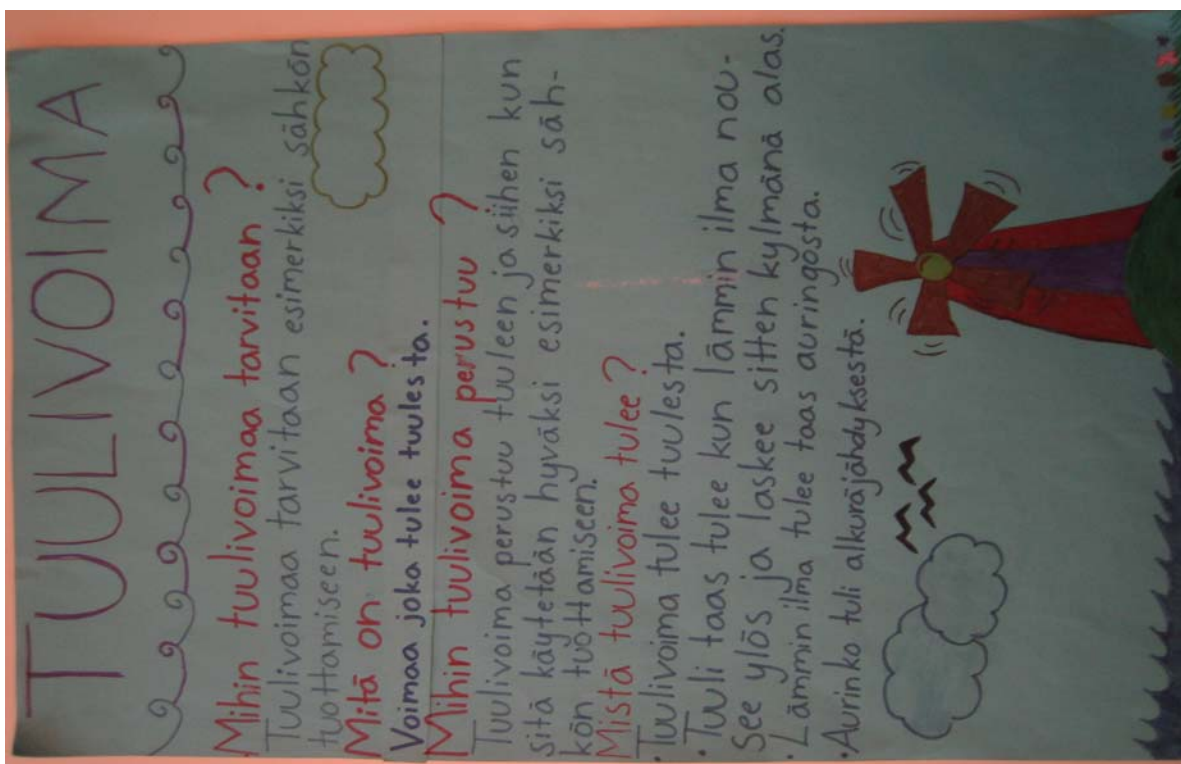 TUULIVOIMA
Mihin tuulivoimaa tarvitaan ?
Tuulivoimaa tarvitaan esimerkiksi sähkön
tuottamiseen.
Mitä on tuulivoima ?
Voimaa joka tulee tuulesta.
Mihin tuulivoima perustuu ?
Tuulivoima perustuu tuuleen ja siihen kun
sitä käytetään hyväksi esimerkiksi säh-
kön tuottamiseen.
Mistä tuulivoima tulee ?
·Tuulivoima tulee tuulesta.
·Tuuli taas tulee kun lämmin ilma nou-
See ylös ja laskee sitten kylmänä alas.
·Lämmin ilma tulee taas auringosta.
·Aurinko tuli alkuräjähdyksestä.